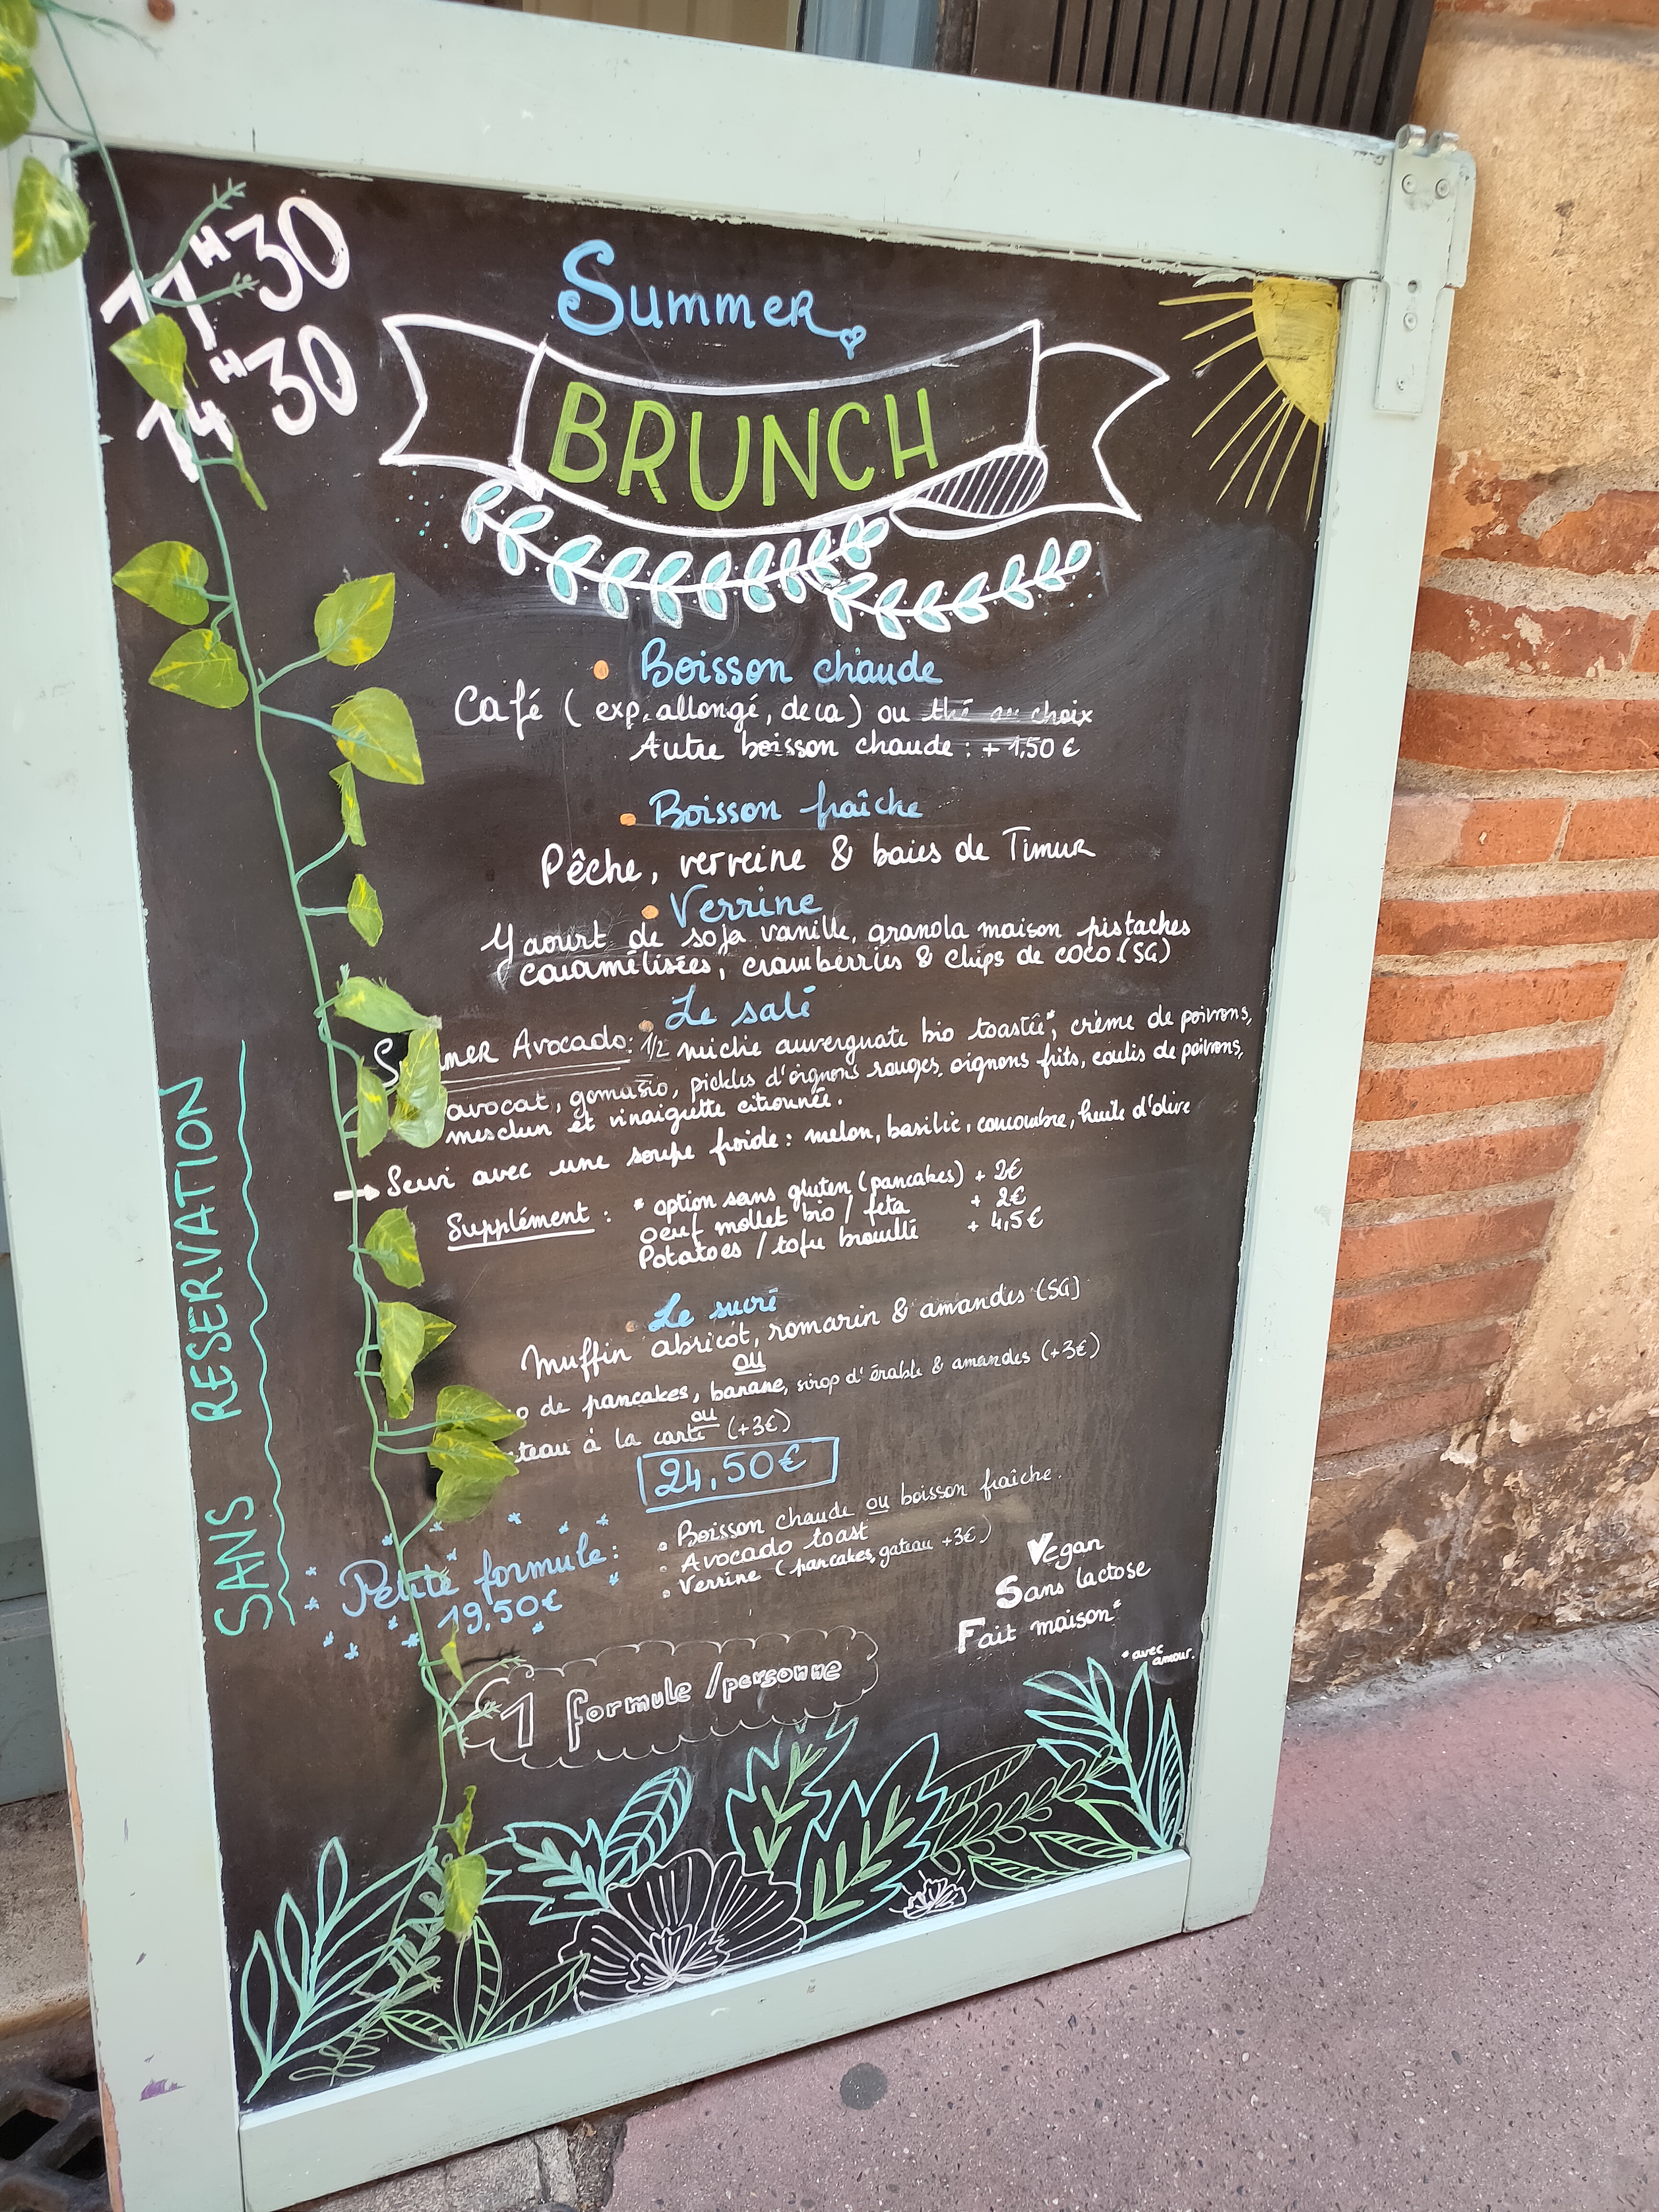 11H30
14H30
Summer
BRUNCH
Boisson chaude
Café (exp, allongé, deca) ou thé au choix
Autre boisson chaude : + 1,50 €
Boisson fraîche
Pêche, verveine & baies de Timur
Verrine
Yaourt de soja vanille, granola maison pistaches
caramélisées, cramberries & chips de coco (SG)
Le salé
Summer Avocado : 1/2 miche auvergnate bio toastée*, crème de poivrons,
avocat, gomasio, pickles d'oignons rouges, oignons frits, coulis de poivrons,
mesclun et vinaigrette citronnée.
→ Servi avec une soupe froide : melon, basilic, concombre, huile d'olive
Supplément : * option sans gluten (pancakes) + 2€
oeuf mollet bio / feta + 2€
Potatoes / tofu brouillé + 4,5€
Le sucré
Muffin abricot, romarin & amandes (SG)
ou
de pancakes, banane, sirop d'érable & amandes (+3€)
ou
à la carte (+3€)
24,50€
Petite formule :
19,50€
• Boisson chaude ou boisson fraîche.
• Avocado toast
• Verrine (pancakes, gateau +3€)
Vegan
Sans lactose
Fait maison*
*avec
amour.
1 formule /personne
SANS RESERVATION